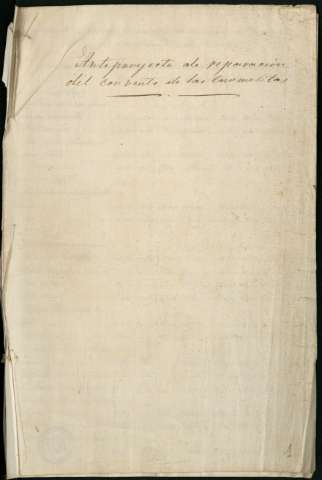 Anteproyecto de reparación
del convento de las Carmelitas